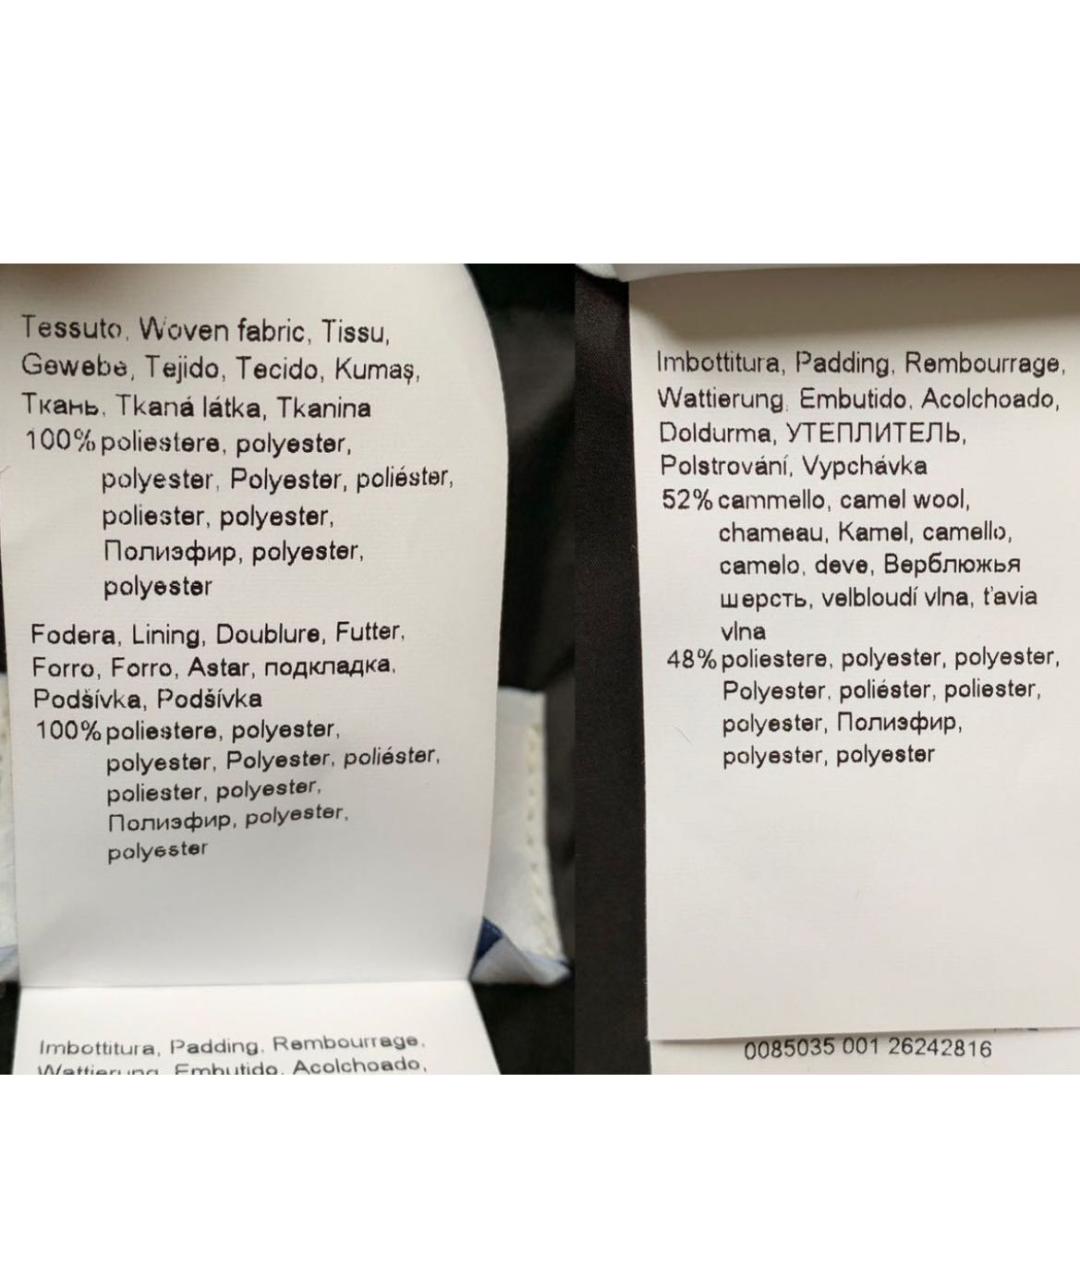 Tessuto, Woven fabric, Tissu,
Gewebe, Tejido, Tecido, Kumaş,
Ткань, Tkaná látka, Tkanina
100% poliestere, polyester,
polyester, Polyester, poliéster,
poliester, polyester,
Полиэфир, polyester,
polyester
Fodera, Lining, Doublure, Futter,
Forro, Forro, Astar, подкладка,
Podšívka, Podšívka
100% poliestere, polyester,
polyester, Polyester, poliéster,
poliester, polyester,
Полиэфир, polyester,
polyester
Imbottitura, Padding, Rembourrage,
Wattierung, Embutido, Acolchoado,
Imbottitura, Padding, Rembourrage,
Wattierung, Embutido, Acolchoado,
Doldurma, УТЕПЛИТЕЛЬ,
Polstrování, Vypchávka
52% cammello, camel wool,
chameau, Kamel, camello,
camelo, deve, Верблюжья
шерсть, velbloudí vlna, ťavia
vlna
48% poliestere, polyester, polyester,
Polyester, poliéster, poliester,
polyester, Полиэфир,
polyester, polyester
0085035 001 26242816